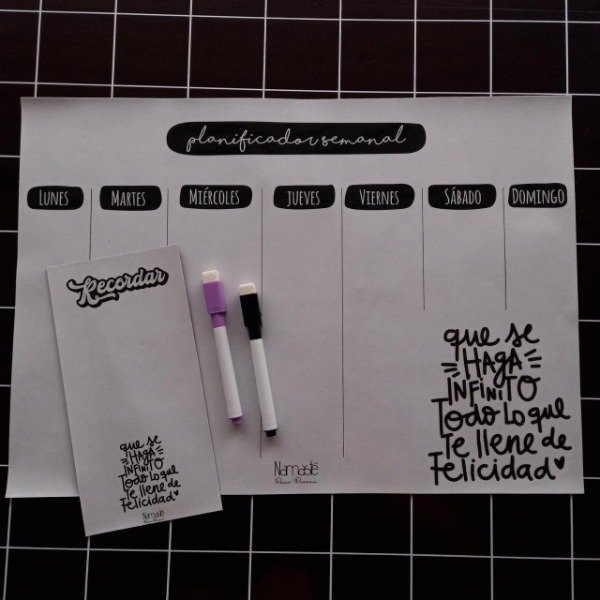 planificador semanal
LUNES
MARTES
MIÉRCOLES
JUEVES
VIERNES
SÁBADO
DOMINGO
Recordar
que se
HAGA
INFINITO
Todo lo que
Te llene de
Felicidad
que se
HAGA
INFINITO
Todo lo que
Te llene de
Felicidad
Namasté
Namasté